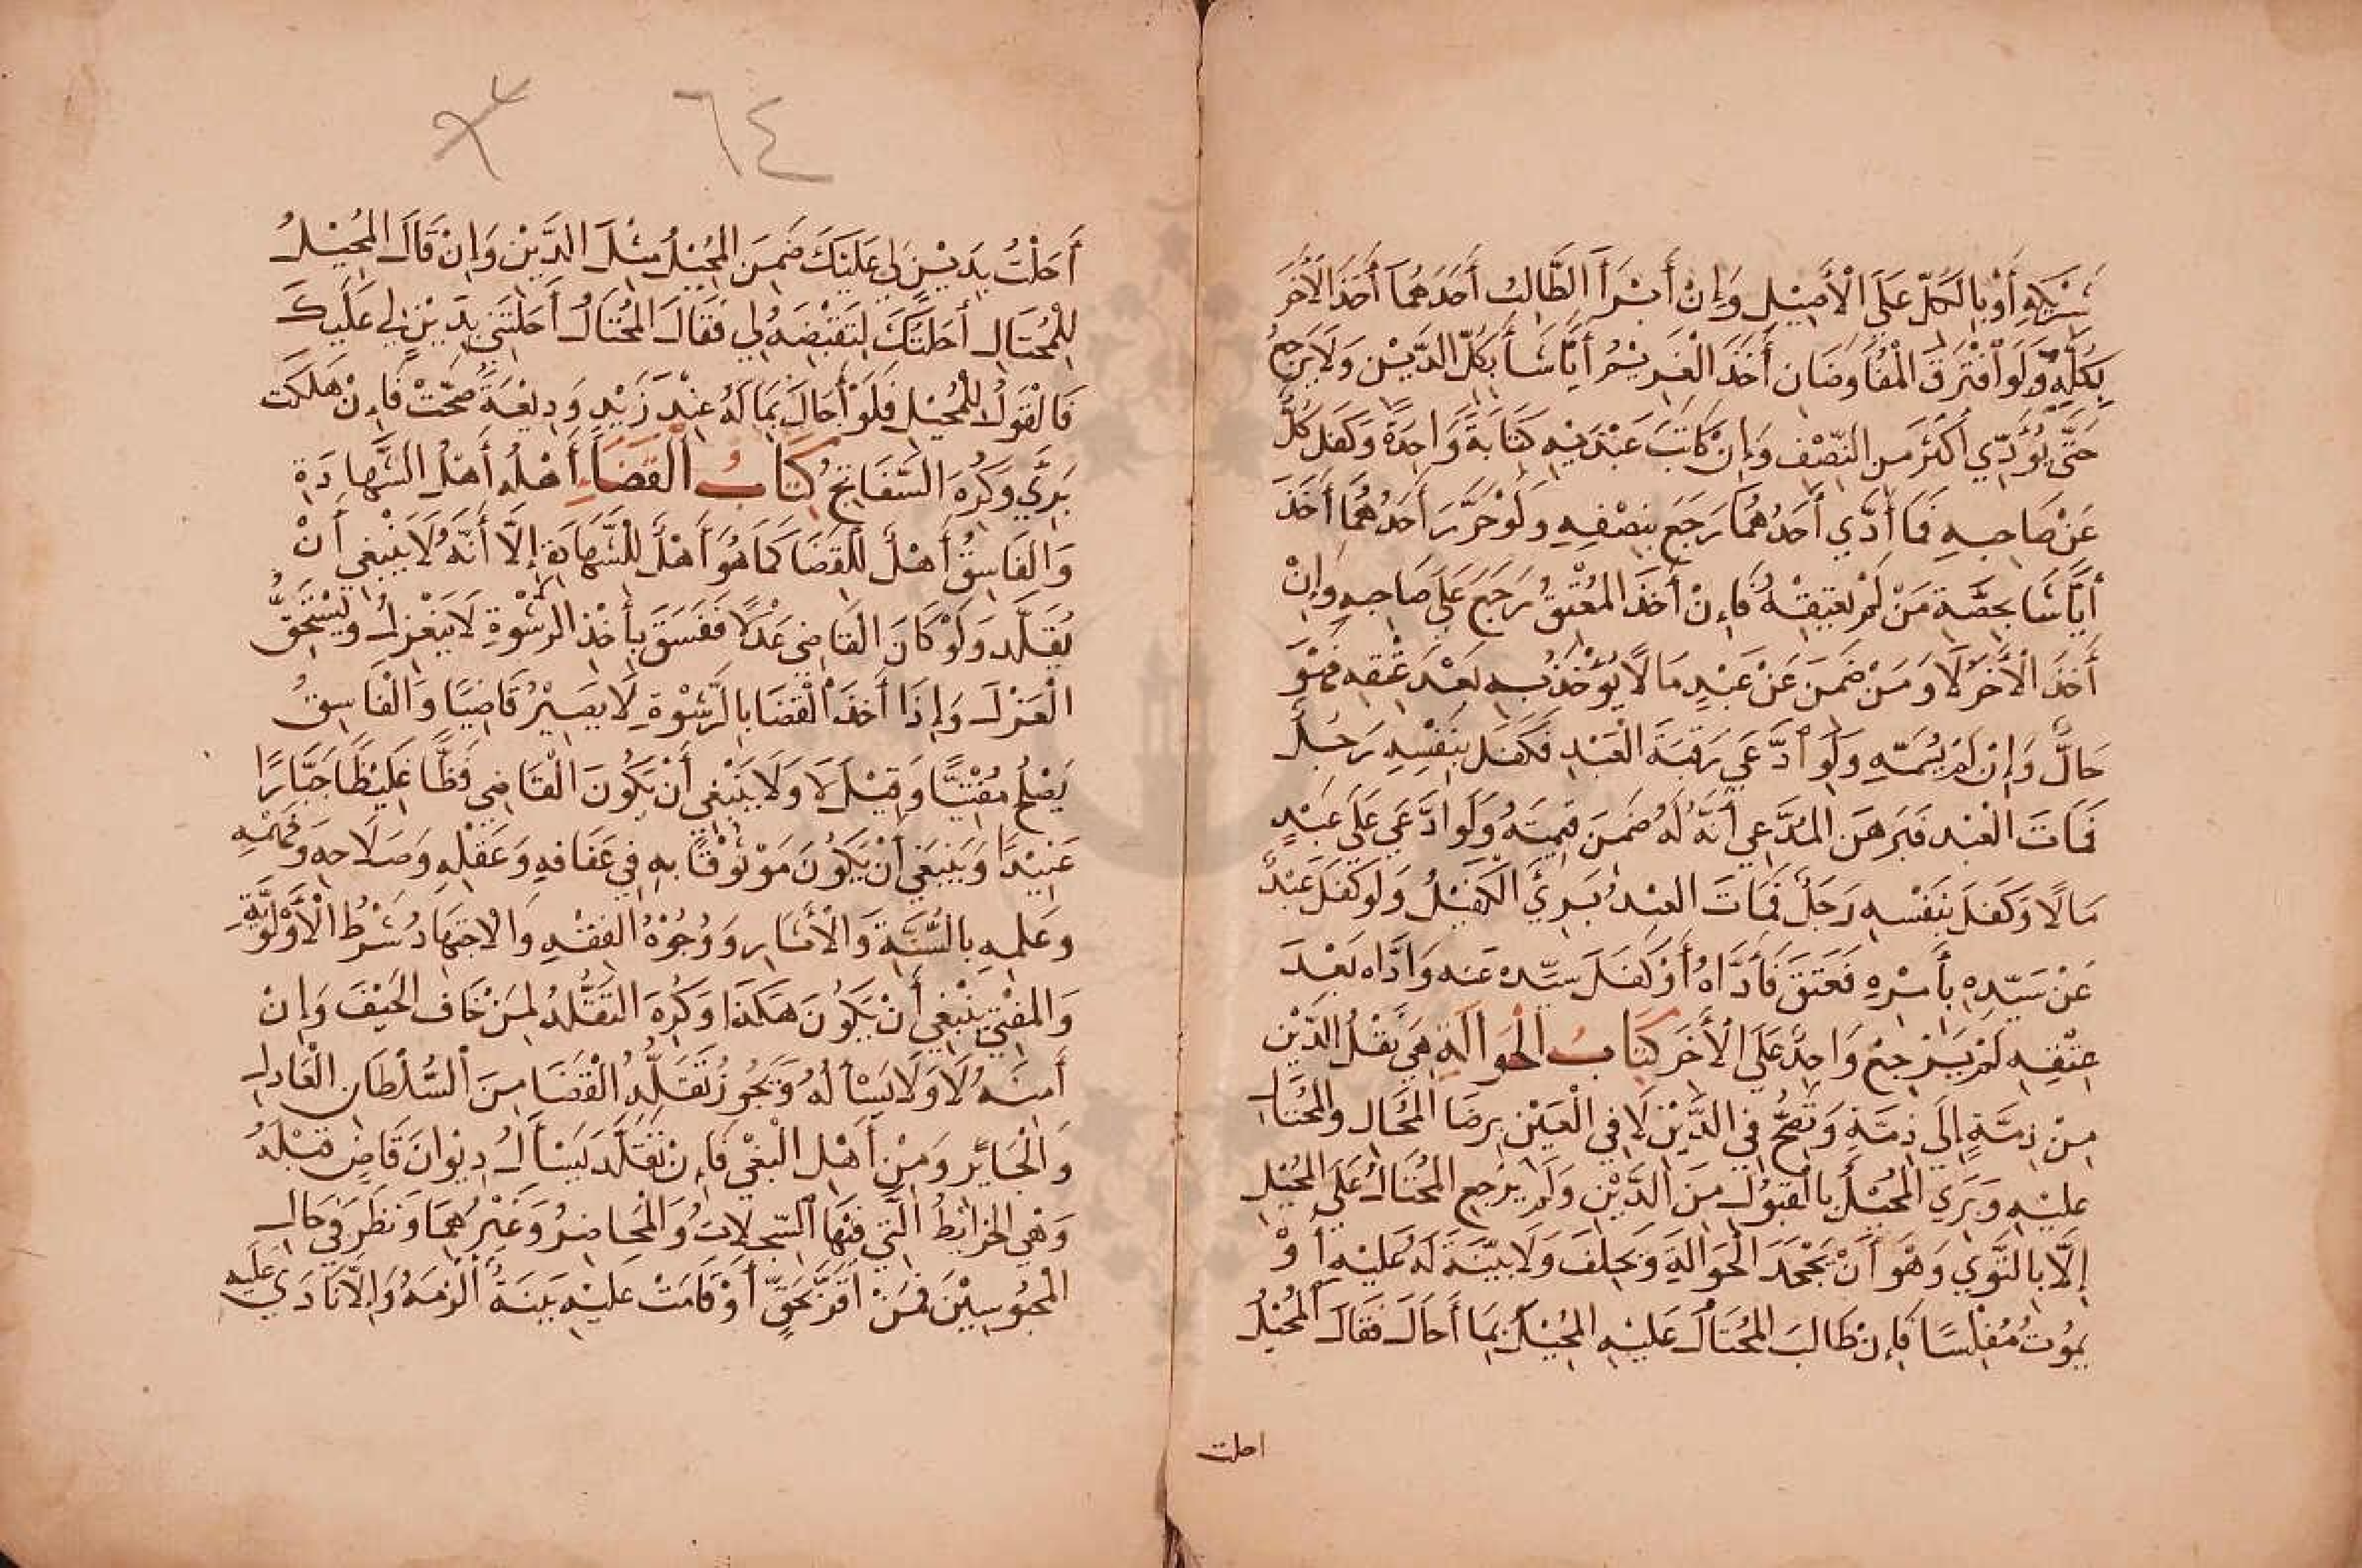 شَرِيكِهِ أَوْ بِالْكُلِّ عَلَى الْأَصِيْلِ وَإِنْ أَبْرَأَ الطَّالِبُ أَحَدَهُمَا أَخَذَ الْآخَرَ
بِكُلِّهِ وَلَوْ افْتَرَقَ الْمُفَاوِضَانِ أَخَذَ الْغَرِيْمُ أَيًّا شَأَ بِكُلِّ الدَّيْنِ وَلَا يَرْجِعُ
حَتَّى يُؤَدِّي أَكْثَرَ مِنَ النِّصْفِ وَإِنْ كَاتَبَ عَبْدَيْهِ كِتَابَةً وَاحِدَةً وَكَفَلَ كُلٌّ
عَنْ صَاحِبِهِ فَمَا أَدَّي أَحَدُهُمَا رَجَعَ بِنِصْفِهِ وَلَوْ حَرَّرَ أَحَدَهُمَا أَخَذَ
أَيًّا شَا بِحِصَّةِ مَنْ لَمْ يُعْتِقْهُ فَإِنْ أَخَذَ الْمُعْتَقَ رَجَعَ عَلَى صَاحِبِهِ وَإِنْ
أَخَذَ الْآخَرَ لَا وَمَنْ ضَمِنَ عَنْ عَبْدٍ مَالًا يُؤْخَذُ بِهِ بَعْدَ عِتْقِهِ فَهُوَ
حَالٌّ وَإِنْ لَمْ يُسَمِّهِ وَلَوْ ادَّعَي رَقَبَةَ الْعَبْدِ فَكَفَلَ بِنَفْسِهِ رَجُلٌ
فَمَاتَ الْعَبْدُ فَبَرْهَنَ الْمُدَّعِي أَنَّهُ لَهُ ضَمِنَ قِيمَتَهُ وَلَوِ ادَّعَي عَلَى عَبْدٍ
مَالًا وَكَفَلَ بِنَفْسِهِ رَجُلٌ فَمَاتَ الْعَبْدُ بَرِيَ الْكَفِيْلُ وَلَوْ كَفَلَ عَبْدٌ
عَنْ سَيِّدِهِ بِأَمْرِهِ فَعَتَقَ فَأَدَّاهُ أَوْ كَفَلَ سَيِّدُهُ عَنْهُ وَأَدَّاهُ بَعْدَ
عِتْقِهِ لَمْ يَرْجِعْ وَاحِدٌ عَلَى الْأَخَرِ كِتَابُ الْحَوَالَةِ هِيَ نَقْلُ الدَّيْنِ
مِنْ ذِمَّةٍ إِلَى ذِمَّةٍ وَتَصِحُّ فِي الدَّيْنِ لَا فِي الْعَيْنِ بِرِضَا الْمُحَالِ وَالْمُحْتَالِ
عَلَيْهِ وَبَرِيَ الْمُحِيْلُ بِالْقَبُوْلِ مِنَ الدَّيْنِ وَلَمْ يَرْجِعِ الْمُحْتَالُ عَلَى الْمُحِيْلِ
إِلَّا بِالتَّوِي وَهُوَ أَنْ يَجْحَدَ الْحَوَالَةَ وَيَحْلِفَ وَلَا بَيِّنَةَ لَهُ عَلَيْهِ أَوْ
يَمُوْتُ مُفْلِسًا فَإِنْ طَالَبَ الْمُحْتَالُ عَلَيْهِ الْمُحِيْلَ بِمَا أَحَالَ فَقَالَ الْمُحِيْلُ
احلت
٦٤
أَحَلْتُ بِدَيْنٍ لِي عَلَيْكَ ضَمِنَ الْمُحِيْلُ مِثْلَ الدَّيْنِ وَإِنْ قَالَ الْمُحِيْلُ
لِلْمُحْتَالِ أَحَلْتُكَ لِتَقْبِضَهُ لِي فَقَالَ الْمُحْتَالُ أَحَلْتَنِي بِدَيْنٍ لِي عَلَيْكَ
فَالْقَوْلُ لِلْمُحِيْلِ فَلَوْ أَحَالَ بِمَا لَهُ عِنْدَ زَيْدٍ وَدِيْعَةً صَحَّتْ فَإِنْ هَلَكَتْ
بَرِيَ وَكُرِهَ السَّفَاتِجُ كِتَابُ الْقَضَاءِ أَهْلُهُ أَهْلُ الشَّهَادَةِ
وَالْفَاسِقُ أَهْلٌ لِلْقَضَا كَمَا هُوَ أَهْلٌ لِلشَّهَادَةِ إِلَّا أَنَّهُ لَا يَنْبَغِي أَنْ
يُقَلَّدَ وَلَوْ كَانَ الْقَاضِي عَدْلًا فَفَسَقَ بِأَخْذِ الرِّشْوَةِ لَا يَنْعَزِلُ وَيَسْتَحِقُّ
الْعَزْلَ وَإِذَا أَخَذَ الْقَضَا بِالرِّشْوَةِ لَا يَصِيْرُ قَاضِيًا وَالْفَاسِقُ
يَصْلُحُ مُفْتِيًا وَقِيْلَ لَا وَلَا يَنْبَغِي أَنْ يَكُوْنَ الْقَاضِي فَظًّا غَلِيْظًا جَبَّارًا
عَنِيْدًا وَيَنْبَغِي أَنْ يَكُوْنَ مَوْثُوْقًا بِهِ فِي عَفَافِهِ وَعَقْلِهِ وَصَلَاحِهِ وَفَهْمِهِ
وَعِلْمِهِ بِالسُّنَّةِ وَالْأَثَارِ وَوُجُوْهِ الْفِقْهِ وَالْاجْتِهَادُ شَرْطُ الْأَوْلَوِيَّةِ
وَالْمُفْتِي يَنْبَغِي أَنْ يَكُوْنَ هَكَذَا وَكُرِهَ التَّقَلُّدُ لِمَنْ خَافَ الْحَيْفَ وَإِنْ
أَمِنَهُ لَا وَلَا يَسْأَلُهُ وَيَجُوزُ تَقَلُّدُ الْقَضَا مِنَ السُّلْطَانِ الْعَادِلِ
وَالْجَائِرِ وَمِنْ أَهْلِ الْبَغْيِ فَإِنْ تَقَلَّدَ يَسْأَلُ دِيْوَانَ قَاضٍ قَبْلَهُ
وَهْيَ الْخَرَائِطُ الَّتِي فِيْهَا السِّجِلَاتُ وَالْمَحَاضِرُ وَغَيْرُهُمَا وَنَظَرَ فِي حَالِ
الْمَحْبُوْسِيْنَ فَمَنْ أَقَرَّ بِحَقٍّ أَوْ قَامَتْ عَلَيْهِ بَيِّنَةٌ أَلْزَمَهُ وَإِلَّا نَادَي عَلَيْهِ